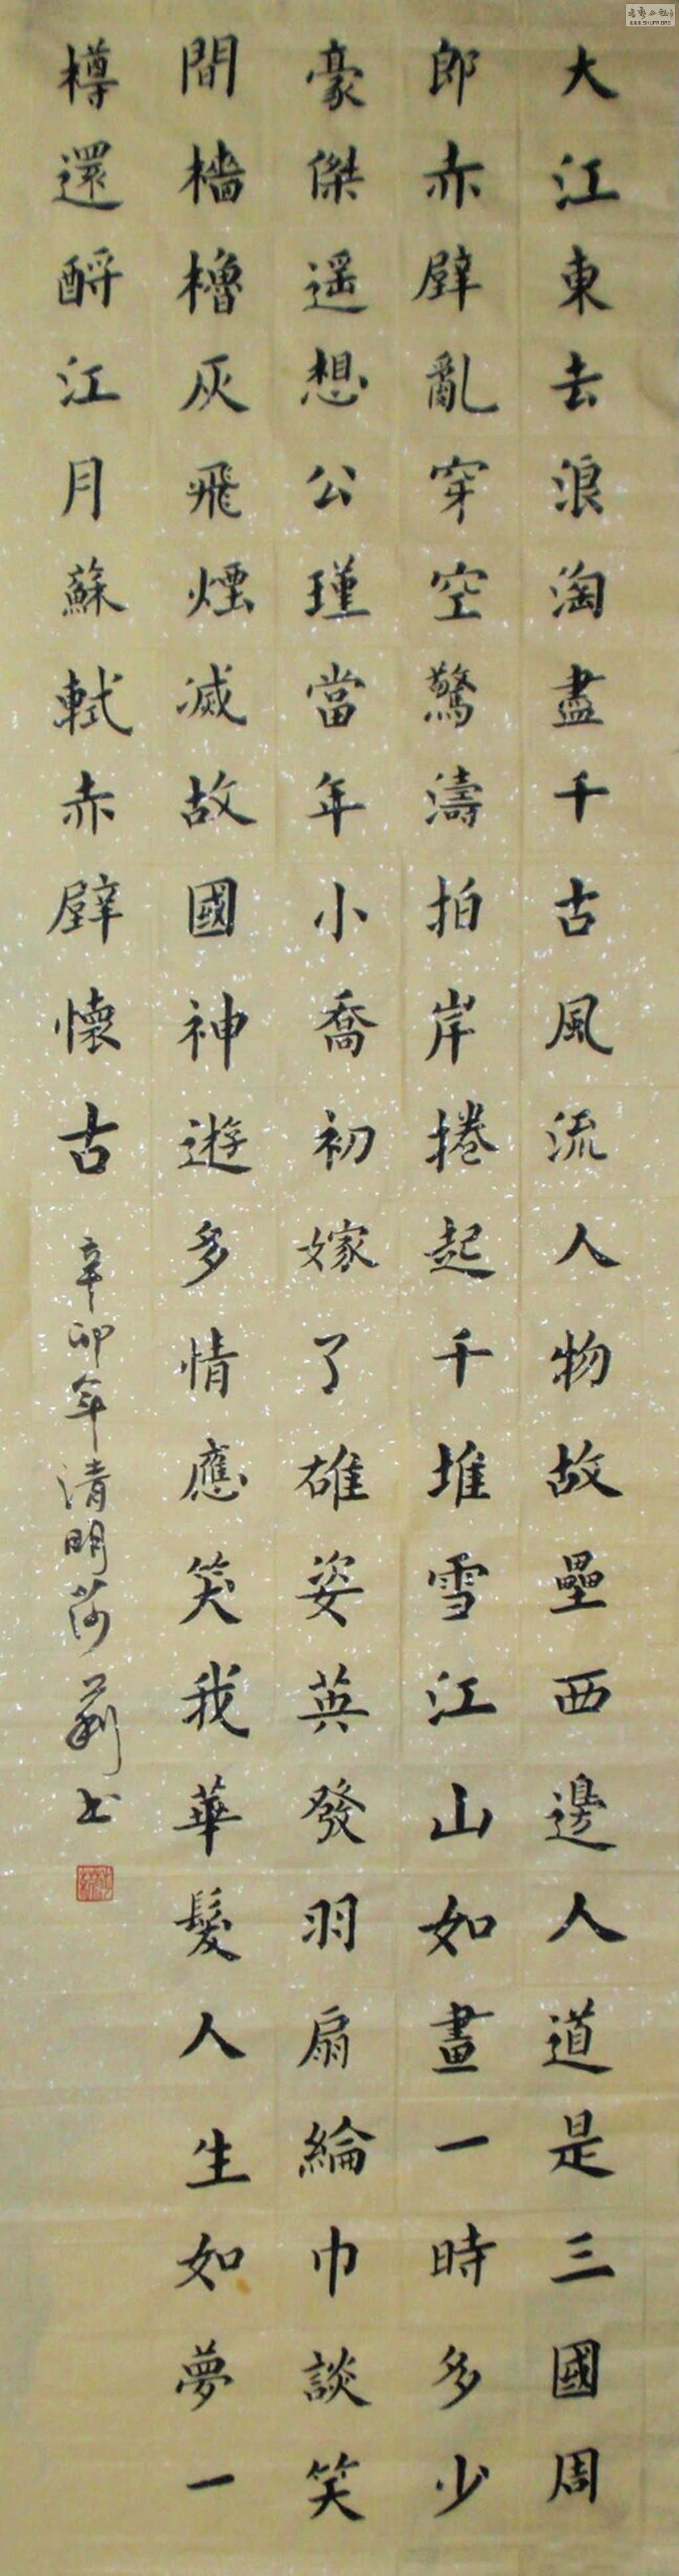 大江東去浪淘盡千古風流人物故壘西邊人道是三國周
郎赤壁亂穿空驚濤拍岸捲起千堆雪江山如畫一時多少
豪傑遥想公瑾當年小喬初嫁了雄姿英發羽扇綸巾談笑
間檣櫓灰飛煙滅故國神遊多情應笑我華髮人生如夢一
樽還酹江月蘇軾赤壁懷古
辛卯年清明莎莉书
WWW.SHUFA.ORG